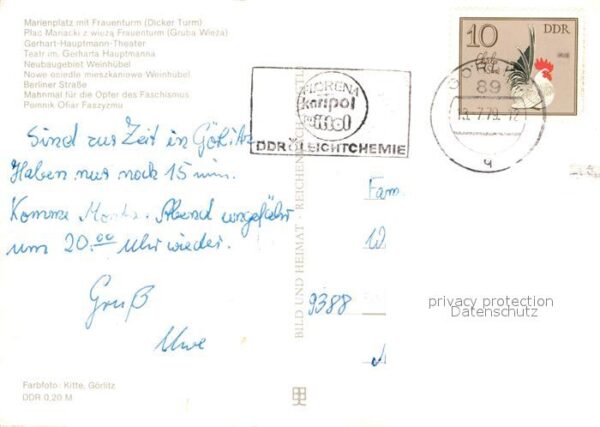 Marienplatz mit Frauenturm (Dicker Turm)
Plac Mariacki z wieżą Frauenturm (Gruba Wieża)
Gerhart-Hauptmann-Theater
Teatr im. Gerharta Hauptmanna
Neubaugebiet Weinhübel
Nowe osiedle mieszkaniowe Weinhübel
Berliner Straße
Mahnmal für die Opfer des Faschismus
Pomnik Ofiar Faszyzmu
Sind zur Zeit in Görlitz
Haben nur noch 15 min.
Komme Abend ungefähr
um 20.00 Uhr wieder.
Gruß
Uwe
Farbfoto: Kitte, Görlitz
DDR 0,20 M
FLORENA
karipol
DDR LEICHTCHEMIE
BILD UND HEIMAT · REICHENBACH
10
DDR
GÖRLITZ
89
7.79
Fam.
W
9388
privacy protection
Datenschutz